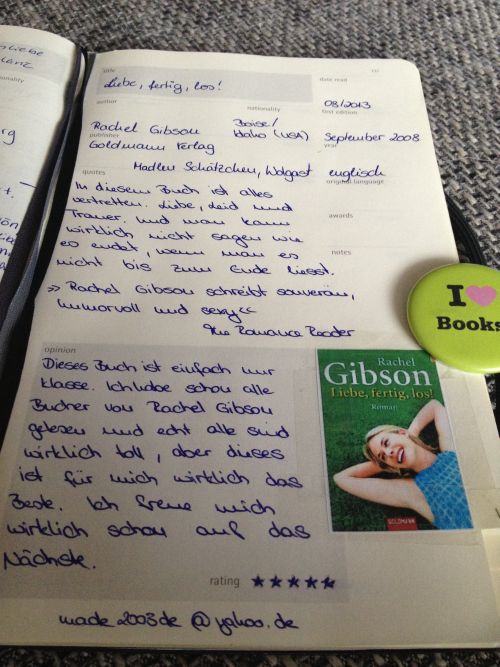 title
Liebe, fertig, los!
date read
08/2013
author
nationality
first edition
Rachel Gibson
Boise/
Idaho (USA)
September 2008
publisher
year
Goldmann Verlag
Madlen Schätzchen, Wolgast
englisch
quotes
original language
In diesem Buch ist alles
vertretten. Liebe, Leid und
Trauer. und man kann
wirklich nicht sagen wie
es endet, wenn man es
nicht bis zum Ende liesst.
awards
notes
>> Rachel Gibson schreibt souverän,
humorvoll und sexy <<
The Romance Reader
I
Books
opinion
Dieses Buch ist einfach nur
klasse. Ich habe schon alle
Bücher von Rachel Gibson
gelesen und echt alle sind
wirklich toll, aber dieses
ist für mich wirklich das
Beste. Ich freue mich
wirklich schon auf das
Nächste.
Rachel
Gibson
Liebe, fertig, los!
Roman
GOLDMANN
rating
made2003de@yahoo.de